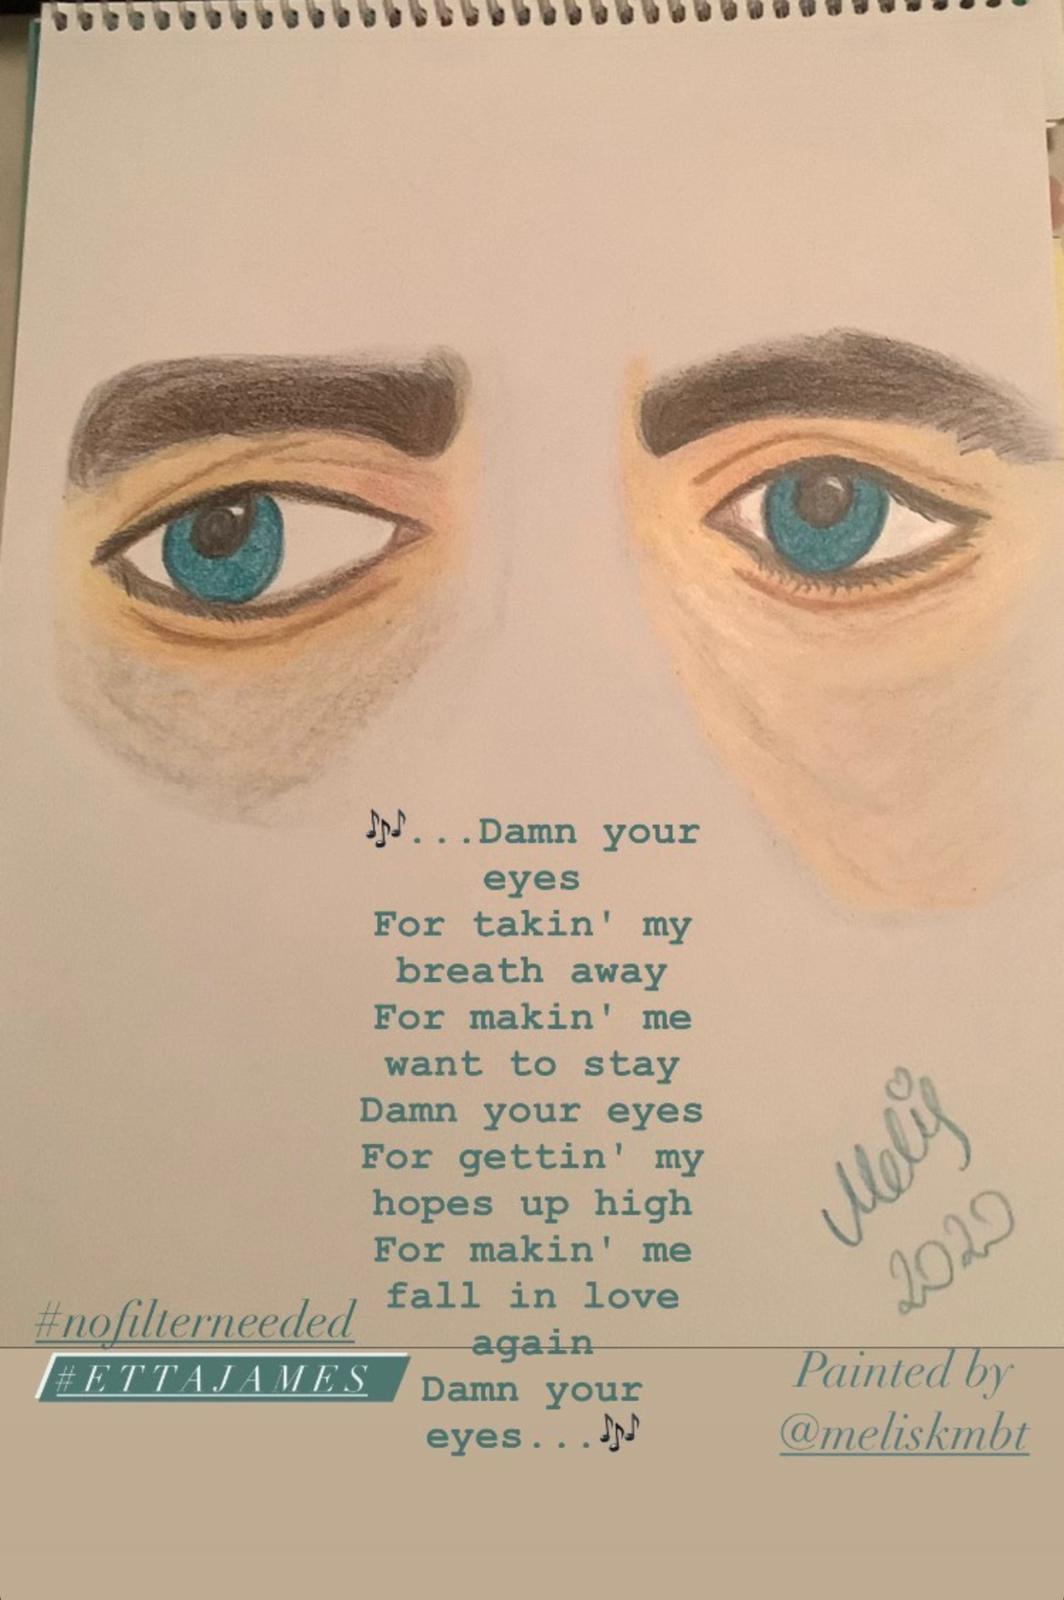 🎶...Damn your
eyes
For takin' my
breath away
For makin' me
want to stay
Damn your eyes
For gettin' my
hopes up high
For makin' me
fall in love
again
Damn your
eyes...🎶
Melis
2020
#nofilterneeded
#ETTAJAMES
Painted by
@meliskmbt